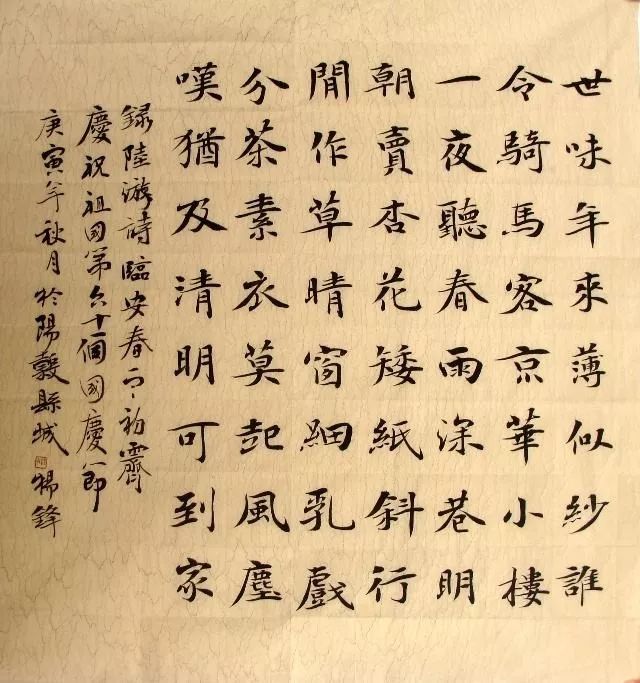 世味年來薄似紗誰
令騎馬客京華小樓
一夜聽春雨深巷明
朝賣杏花矮紙斜行
閒作草晴窗細乳戲
分茶素衣莫起風塵
嘆猶及清明可到家
錄陸游詩臨安春雨初霽
慶祝祖国第六十一個國慶節
庚寅年秋月於陽穀縣城 楊鋒